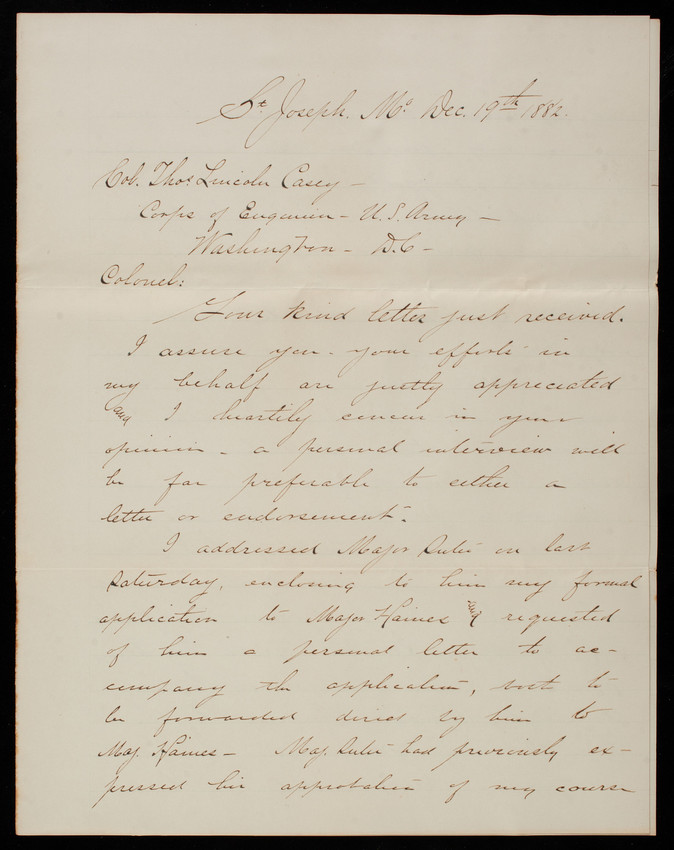 St. Joseph. Mo Dec. 19th 1882.
Col. Thos Lincoln Casey —
Corps of Engineers — U.S. Army —
Washington — D.C —
Colonel:
Your kind letter just received.
I assure you your efforts in
my behalf are justly appreciated
and I heartily concur in your
opinion — a personal interview will
be far preferable to either a
letter or endorsement.
I addressed Major Suter on last
Saturday, enclosing to him my formal
application to Major Haines and requested
of him a personal letter to ac-
company the application, both to
be forwarded direct by him to
Maj. Haines — Maj. Suter had previously ex-
pressed his approbation of my course